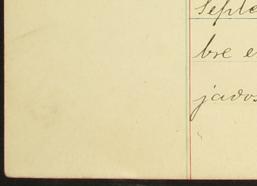 Septe
bre e
jados